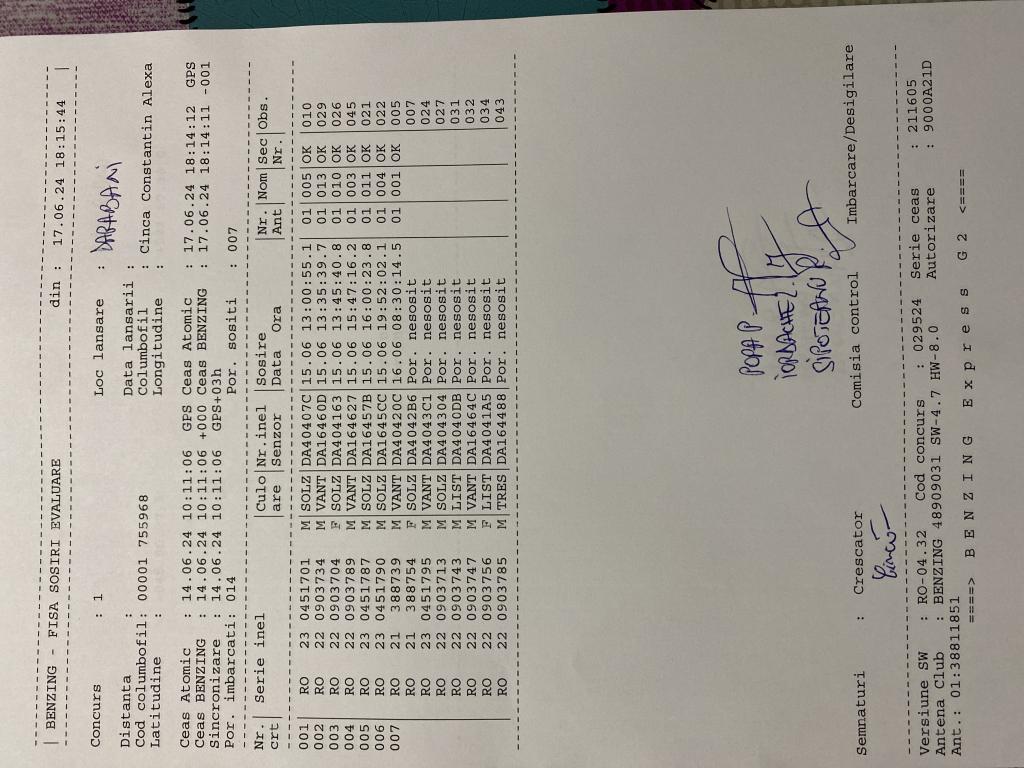 | BENZING - FISA SOSIRI EVALUARE din : 17.06.24 18:15:44 |
Concurs : 1 Loc lansare : DARABANI
Distanta : Data lansarii :
Cod columbofil: 00001 755968 Columbofil : Cinca Constantin Alexa
Latitudine : Longitudine :
Ceas Atomic : 14.06.24 10:11:06 GPS Ceas Atomic : 17.06.24 18:14:12 GPS
Ceas BENZING : 14.06.24 10:11:06 +000 Ceas BENZING : 17.06.24 18:14:11 -001
Sincronizare : 14.06.24 10:11:06 GPS+03h
Por. imbarcati: 014 Por. sositi : 007
Nr.| Serie inel |Culo|Nr.inel |Sosire |Nr.|Nom|Sec|Obs.
crt| |are |Senzor |Data Ora |Ant| |Nr.|
001 | RO 23 0451701 M|SOLZ|DA40407C|15.06 13:00:55.1| 01|005|OK | 010
002 | RO 22 0903734 M|VANT|DA16460D|15.06 13:35:39.7| 01|013|OK | 029
003 | RO 22 0903704 F|SOLZ|DA404163|15.06 13:45:40.8| 01|010|OK | 026
004 | RO 22 0903789 M|VANT|DA164627|15.06 15:47:16.2| 01|003|OK | 045
005 | RO 23 0451787 M|SOLZ|DA16457B|15.06 16:00:23.8| 01|011|OK | 021
006 | RO 23 0451790 M|SOLZ|DA1645CC|15.06 19:52:02.1| 01|004|OK | 022
007 | RO 21 388739 M|VANT|DA40420C|16.06 08:30:14.5| 01|001|OK | 005
| RO 21 388754 F|SOLZ|DA4042B6|Por. nesosit | | | | 007
| RO 23 0451795 M|VANT|DA4043C1|Por. nesosit | | | | 024
| RO 22 0903713 M|SOLZ|DA404304|Por. nesosit | | | | 027
| RO 22 0903743 M|LIST|DA4040DB|Por. nesosit | | | | 031
| RO 22 0903747 M|VANT|DA16464C|Por. nesosit | | | | 032
| RO 22 0903756 F|LIST|DA4041A5|Por. nesosit | | | | 034
| RO 22 0903785 M|TRES|DA164488|Por. nesosit | | | | 043
POPA P
IORDACHE L.
SIROTEANU P.
Semnaturi : Crescator Comisia control Imbarcare/Desigilare
Versiune SW : RO-04.32 Cod concurs : 029524 Serie ceas : 211605
Antena Club : BENZING 48909031 SW-4.7 HW-8.0 Autorizare : 9000A21D
Ant.: 01:38811851
====> B E N Z I N G E x p r e s s G 2 <====